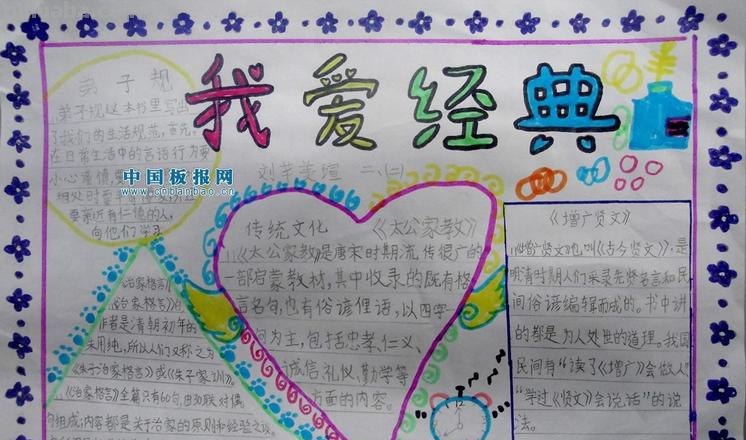 我爱经典
刘芊美瑄 二、(二)
弟子规
弟子规这本书里写出
了我们的生活规范,首先,
在日常生活中的言语行为要
小心谨慎,
要亲近有仁德的人,
向他们学习
中国板报网
www.cnbanbao.cn
传统文化 《太公家教》
《太公家教》是唐宋时期流传很广的
一部启蒙教材,其中收录的既有格
言名句,也有俗谚俚语,以四字一
句为主,包括忠孝、仁义、
诚信、礼仪、勤学等
方面的内容。
《增广贤文》
《增广贤文》也叫《古今贤文》,是
明清时期人们采录先贤名言和民
间俗谚编辑而成的。书中讲
的都是为人处世的道理。我国
民间有“读了《增广》会做人”
“学过《贤文》会说话”的说
法。
治家格言》
《治家格言》的
作者是清朝初年的
朱用纯,所以人们又称之为
《朱子治家格言》或《朱子家训》。
《治家格言》全篇只有60句,由为联对偶
句组成,内容都是关于治家的原则和经验之谈。